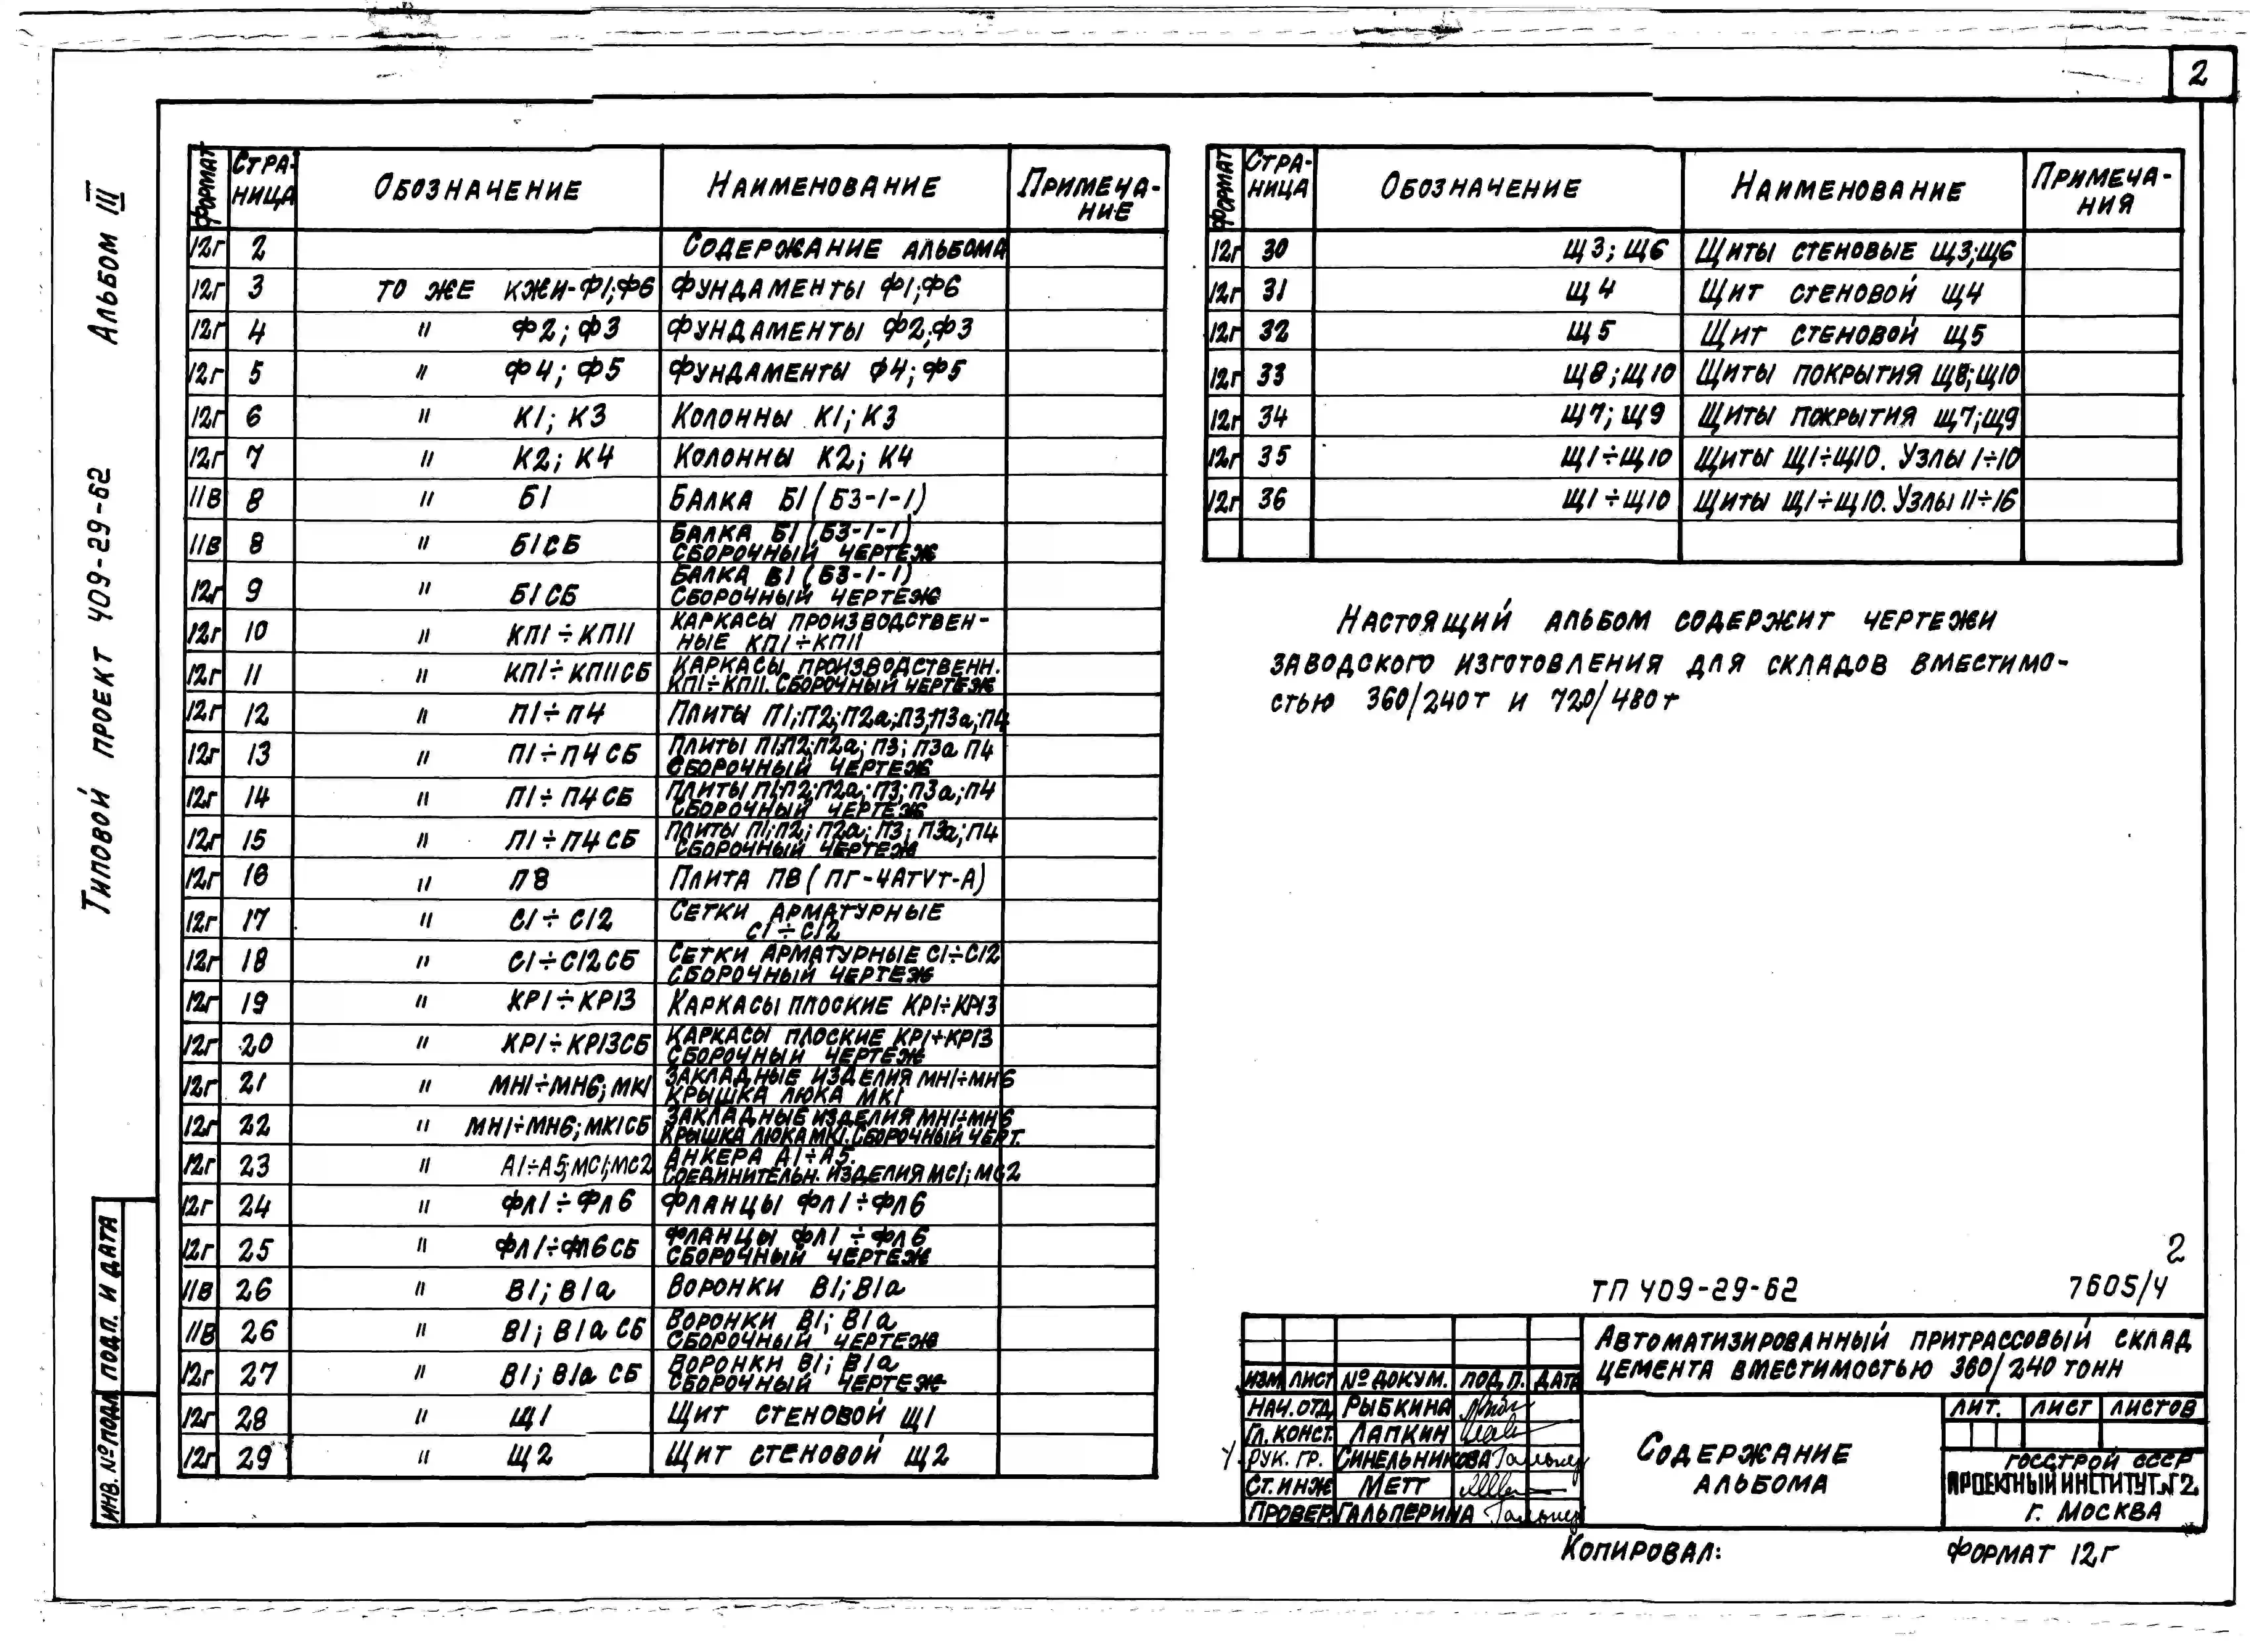 2
Альбом III
Типовой проект 409-29-62
Формат Страница Обозначение Наименование Примечание
12г 2 Содержание альбома
12г 3 то же КЖИ-Ф1;Ф6 Фундаменты Ф1;Ф6
12г 4 " Ф2; Ф3 Фундаменты Ф2;Ф3
12г 5 " Ф4; Ф5 Фундаменты Ф4; Ф5
12г 6 " К1; К3 Колонны К1; К3
12г 7 " К2; К4 Колонны К2; К4
11в 8 " Б1 Балка Б1 (Б3-1-1)
11в 8 " Б1СБ Балка Б1 (Б3-1-1) Сборочный чертеж
12г 9 " Б1СБ Балка Б1 (Б3-1-1) Сборочный чертеж
12г 10 " КП1÷КП11 Каркасы производственные КП1÷КП11
12г 11 " КП1÷КП11СБ Каркасы производственн. КП1÷КП11. Сборочный чертеж
12г 12 " П1÷П4 Плиты П1;П2;П2а;П3;П3а;П4
12г 13 " П1÷П4СБ Плиты П1;П2;П2а; П3; П3а П4 Сборочный чертеж
12г 14 " П1÷П4СБ Плиты П1;П2;П2а;П3;П3а;П4 Сборочный чертеж
12г 15 " П1÷П4СБ Плиты П1;П2; П2а; П3; П3а;П4 Сборочный чертеж
12г 16 " П8 Плита П8 (ПГ-4АтVт-А)
12г 17 " С1÷С12 Сетки арматурные С1÷С12
12г 18 " С1÷С12СБ Сетки арматурные С1÷С12 Сборочный чертеж
12г 19 " КР1÷КР13 Каркасы плоские КР1÷КР13
12г 20 " КР1÷КР13СБ Каркасы плоские КР1÷КР13 Сборочный чертеж
12г 21 " МН1÷МН6; МК1 Закладные изделия МН1÷МН6 Крышка люка МК1
12г 22 " МН1÷МН6; МК1СБ Закладные изделия МН1÷МН6 Крышка люка МК1. Сборочный черт.
12г 23 " А1÷А5;МС1;МС2 Анкера А1÷А5. Соединительн. изделия МС1; МС2
12г 24 " ФЛ1÷ФЛ6 Фланцы ФЛ1÷ФЛ6
12г 25 " ФЛ1÷ФЛ6СБ Фланцы ФЛ1÷ФЛ6 Сборочный чертеж
11в 26 " В1; В1а Воронки В1; В1а
11в 26 " В1; В1а СБ Воронки В1; В1а Сборочный чертеж
12г 27 " В1; В1а СБ Воронки В1; В1а Сборочный чертеж
12г 28 " Щ1 Щит стеновой Щ1
12г 29 " Щ2 Щит стеновой Щ2
Формат Страница Обозначение Наименование Примечания
12г 30 Щ3; Щ6 Щиты стеновые Щ3;Щ6
12г 31 Щ4 Щит стеновой Щ4
12г 32 Щ5 Щит стеновой Щ5
12г 33 Щ8; Щ10 Щиты покрытия Щ8; Щ10
12г 34 Щ7; Щ9 Щиты покрытия Щ7;Щ9
12г 35 Щ1÷Щ10 Щиты Щ1÷Щ10. Узлы 1÷10
12г 36 Щ1÷Щ10 Щиты Щ1÷Щ10. Узлы 11÷16
Настоящий альбом содержит чертежи
заводского изготовления для складов вместимо-
стью 360/240т и 720/480т
2
ТП 409-29-62 7605/4
Автоматизированный притрассовый склад
цемента вместимостью 360/240 тонн
Изм Лист № докум. Подп. Дата
Нач.отд Рыбкина
Гл. конст. Лапкин
Рук. гр. Синельникова
Ст.инж Метт
Провер. Гальперина
Содержание
альбома
Лит. Лист Листов
Госстрой СССР
Проектный институт №2
г. Москва
Инв. № подл Подп. и дата
Копировал: Формат 12г